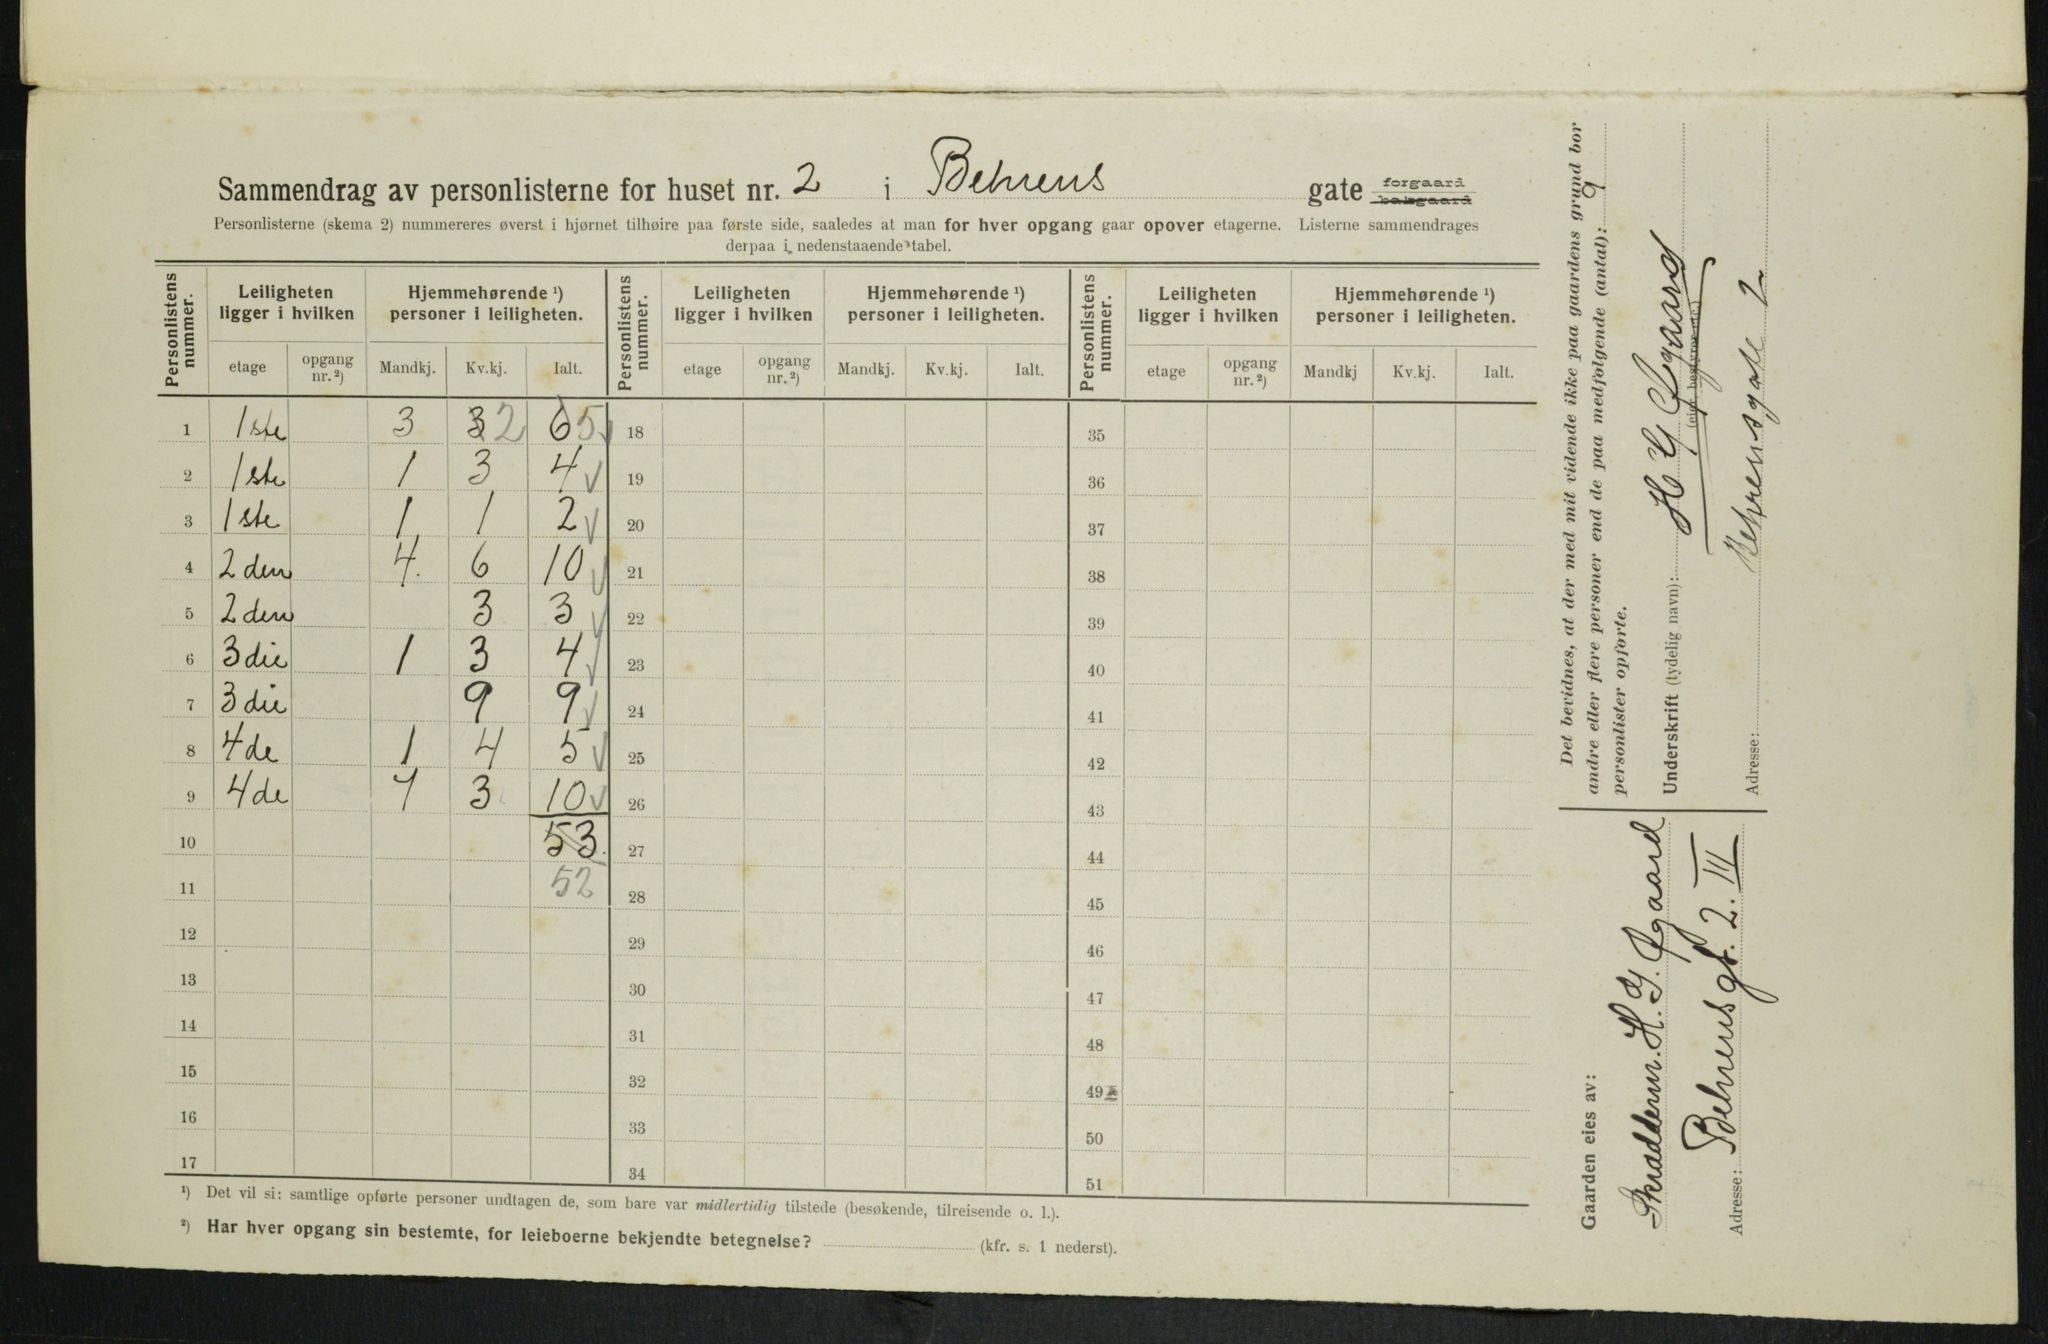 Sammendrag av personlisterne for huset nr. 2 i Behrens gate forgaard bakgaard
Personlisterne (skema 2) nummereres øverst i hjørnet tilhøire paa første side, saaledes at man for hver opgang gaar opover etagerne. Listerne sammendrages
derpaa i nedenstaaende tabel.
Personlistens nummer. Leiligheten ligger i hvilken Hjemmehørende ¹) personer i leiligheten. Personlistens nummer. Leiligheten ligger i hvilken Hjemmehørende ¹) personer i leiligheten. Personlistens nummer. Leiligheten ligger i hvilken Hjemmehørende ¹) personer i leiligheten.
etage opgang nr. ²) Mandkj. Kv.kj. Ialt. etage opgang nr. ²) Mandkj. Kv.kj. Ialt. etage opgang nr. ²) Mandkj Kv.kj. Ialt.
1 1ste 3 3 2 6 5 18 35
2 1ste 1 3 4 19 36
3 1ste 1 1 2 20 37
4 2den 4. 6 10 21 38
5 2den 3 3 22 39
6 3die 1 3 4 23 40
7 3die 9 9 24 41
8 4de 1 4 5 25 42
9 4de 7 3 10 26 43
10 53. 27 44
11 52 28 45
12 29 46
13 30 47
14 31 48
15 32 49
16 33 50
17 34 51
¹) Det vil si: samtlige opførte personer undtagen de, som bare var midlertidig tilstede (besøkende, tilreisende o. l.).
²) Har hver opgang sin bestemte, for leieboerne bekjendte betegnelse? (kfr. s. 1 nederst).
Det bevidnes, at der med mit vidende ikke paa gaardens grund bor
andre eller flere personer end de paa medfølgende (antal): 9
personlister opførte.
Underskrift (tydelig navn): H G Ygaard
(eier, bestyrer etc.)
Adresse: Behrensgate 2
Gaarden eies av:
Skrædderm. H. G. Ygaard
Adresse: Behrensgt. 2. III